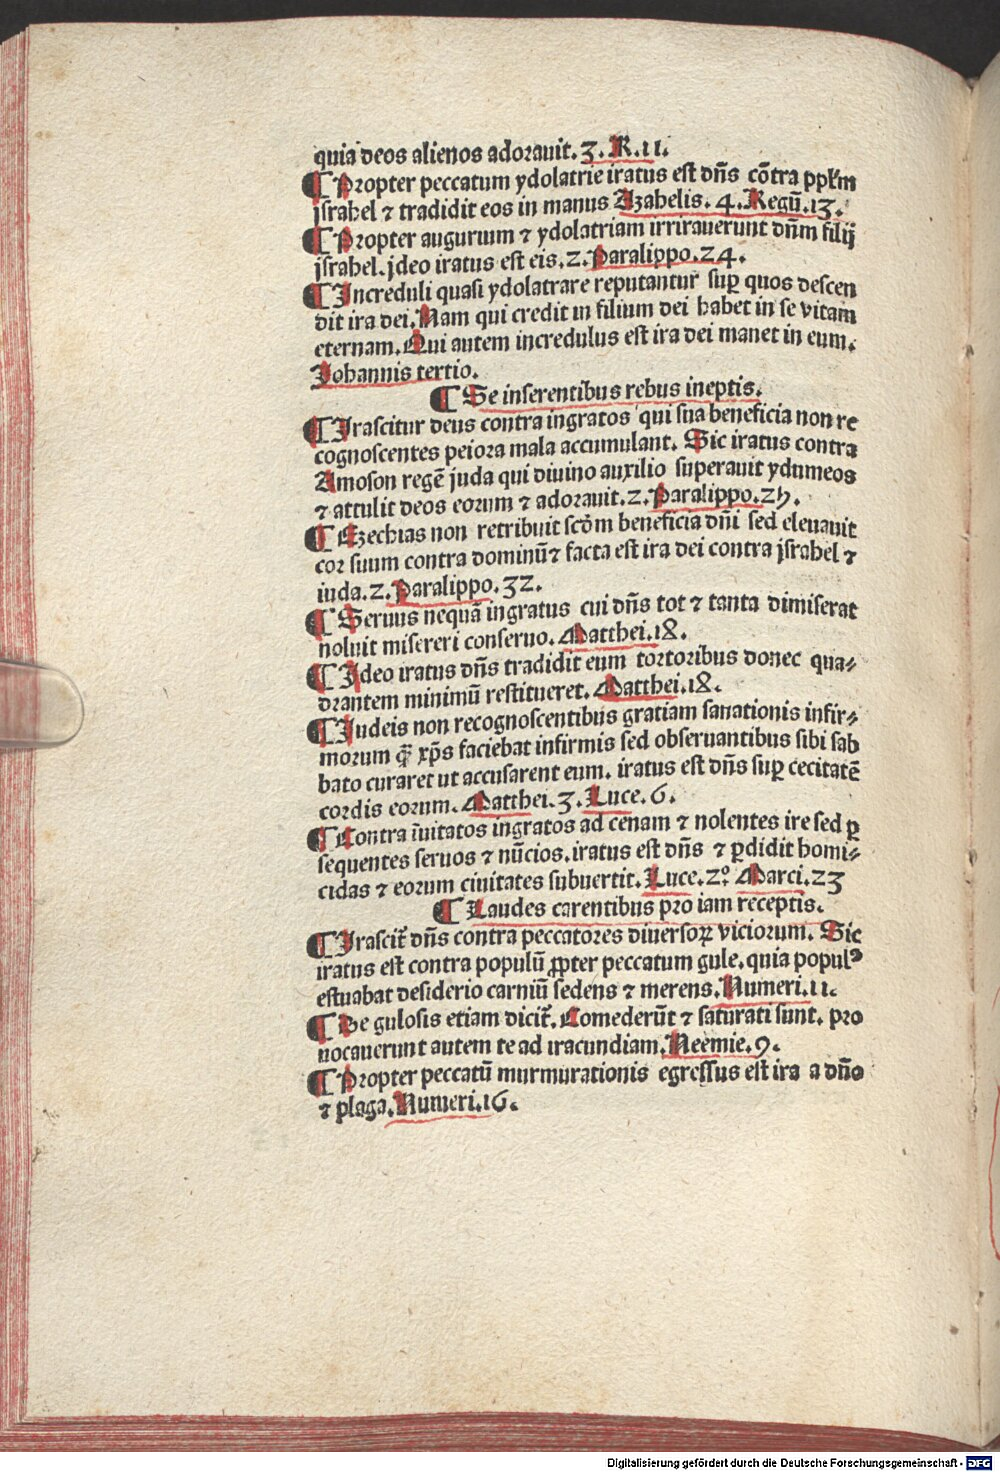 quia deos alienos adorauit. 3. R. 11.
¶ Propter peccatum ydolatrie iratus est dn̄s cōtra pplꝫm
jsrahel ⁊ tradidit eos in manus Azahelis. 4. Regū. 13.
¶ Propter augurium ⁊ ydolatriam irrirauerunt dn̄m filij
jsrahel. jdeo iratus est eis. 2. Paralippo. 24.
¶ Increduli quasi ydolatrare reputantur sup̱ quos descen
dit ira dei. Nam qui credit in filium dei habet in se vitam
eternam. Qui autem incredulus est ira dei manet in eum.
Johannis tertio.
¶ Se inserentibus rebus ineptis.
¶ Irascitur deus contra ingratos qui sua beneficia non re
cognoscentes peiora mala accumulant. Sic iratus contra
Amoson regē juda qui diuino auxilio superauit ydumeos
⁊ attulit deos eorum ⁊ adorauit. 2. Paralippo. 25.
¶ Ezechias non retribuit scōm beneficia dn̄i sed eleuauit
cor suum contra dominū ⁊ facta est ira dei contra jsrahel ⁊
iuda. 2. Paralippo. 32.
¶ Seruus nequā ingratus cui dn̄s tot ⁊ tanta dimiserat
noluit misereri conseruo. Matthei. 18.
¶ Ideo iratus dn̄s tradidit eum tortoribus donec qua⸗
drantem minimū restitueret. Matthei. 18.
¶ Iudeis non recognoscentibus gratiam sanationis infir⸗
morum q̄ꝫ xp̄s faciebat infirmis sed obseruantibus sibi sab
bato curaret ut accusarent eum. iratus est dn̄s sup̱ cecitatē
cordis eorum. Matthei. 3. Luce. 6.
¶ Contra īuitatos ingratos ad cenam ⁊ nolentes ire sed ꝑ
sequentes seruos ⁊ nūcios. iratus est dn̄s ⁊ ꝑdidit homi⸗
cidas ⁊ eorum ciuitates subuertit. Luce. 2º Marci. 23
¶ Laudes carentibus pro iam receptis.
¶ Irascit᷑ dn̄s contra peccatores diuersoꝝ viciorum. Sic
iratus est contra populū ꝓpter peccatum gule. quia popul⁹
estuabat desiderio carniū sedens ⁊ merens. Numeri. 11.
¶ De gulosis etiam dicit᷑. Comederūt ⁊ saturati sunt. pro
uocauerunt autem te ad iracundiam. Neemie. 9.
¶ Propter peccatū murmurationis egressus est ira a dn̄o
⁊ plaga. Numeri. 16.
Digitalisierung gefördert durch die Deutsche Forschungsgemeinschaft - DFG